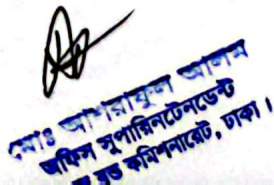 মোঃ আশরাফুল আলম
অফিস সুপারিনটেনডেন্ট
বন্ড কমিশনারেট, ঢাকা।